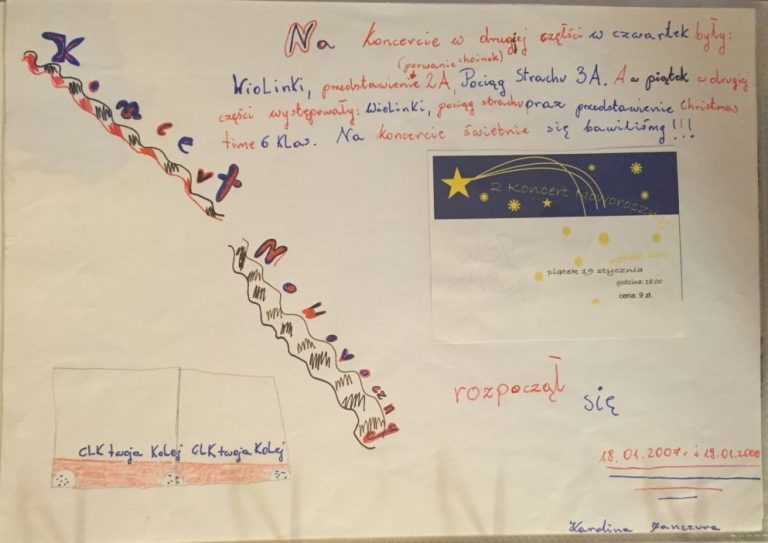 Koncert
Na koncercie w drugiej części w czwartek były:
(porwanie choinek)
Wiolinki, przedstawienie 2A, Pociąg Strachu 3A. A w piątek w drugiej
części występowały: Wiolinki, pociąg strachu oraz przedstawienie Christmas
time 6 klas. Na koncercie świetnie się bawiliśmy!!!
2 Koncert Noworoczny
piątek 19 stycznia
godzina: 18.00
cena: 9 zł
Noworoczny
rozpoczął się
CLK twoja Kolej CLK twoja Kolej
18.01.2007r i 19.01.200
Karolina